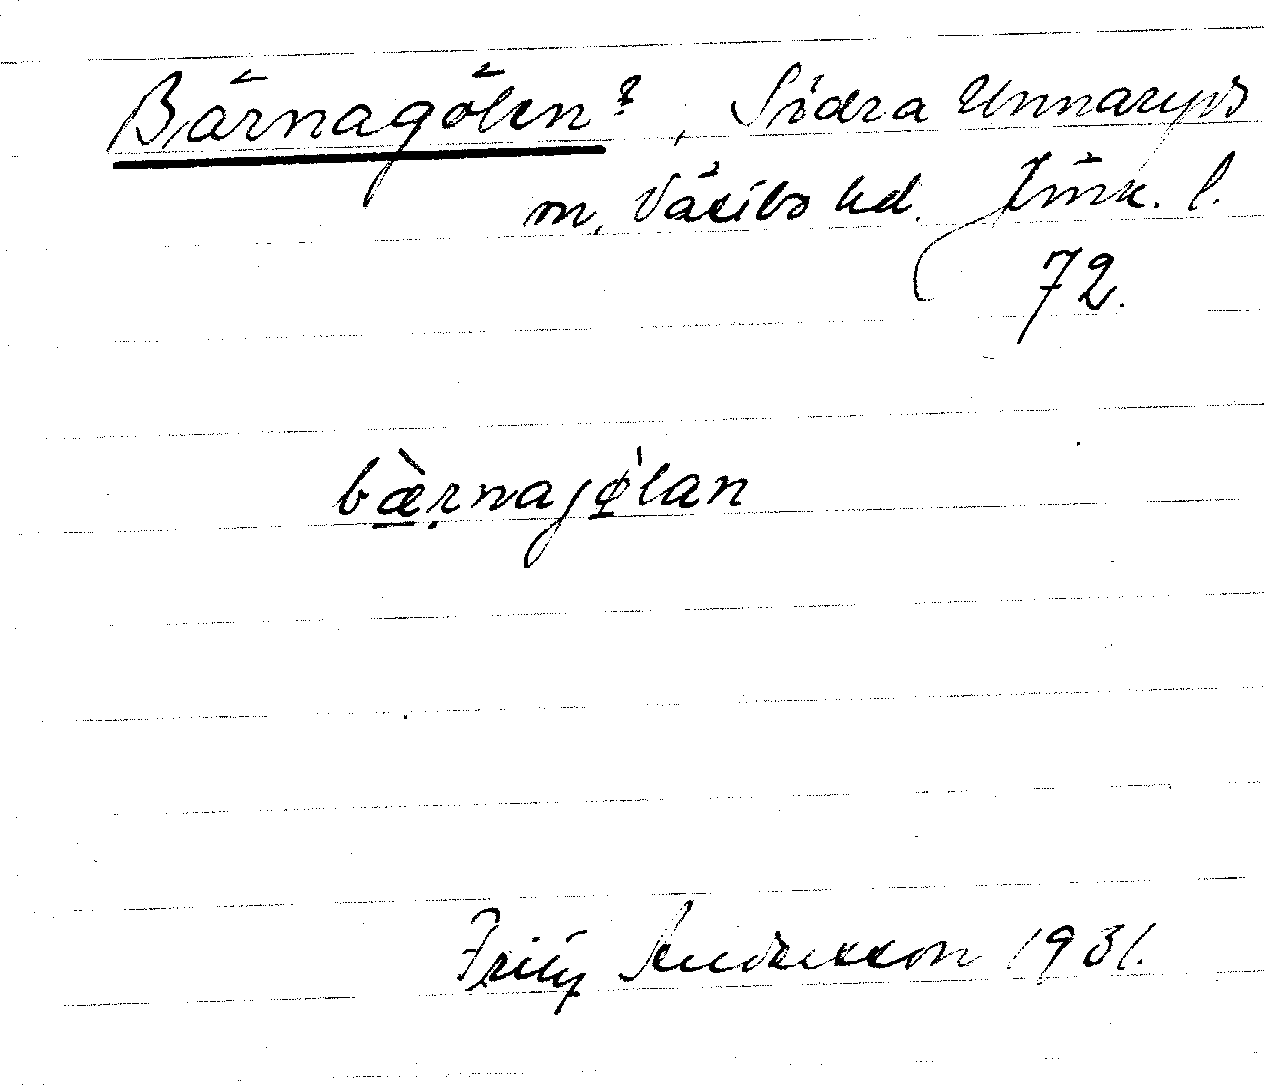 Bärnagölen?, Södra Unnaryds
m, Västbo hd. Jönk. l.
72.
bæ̀rnajǿlan
Fritz Andersson 1931.